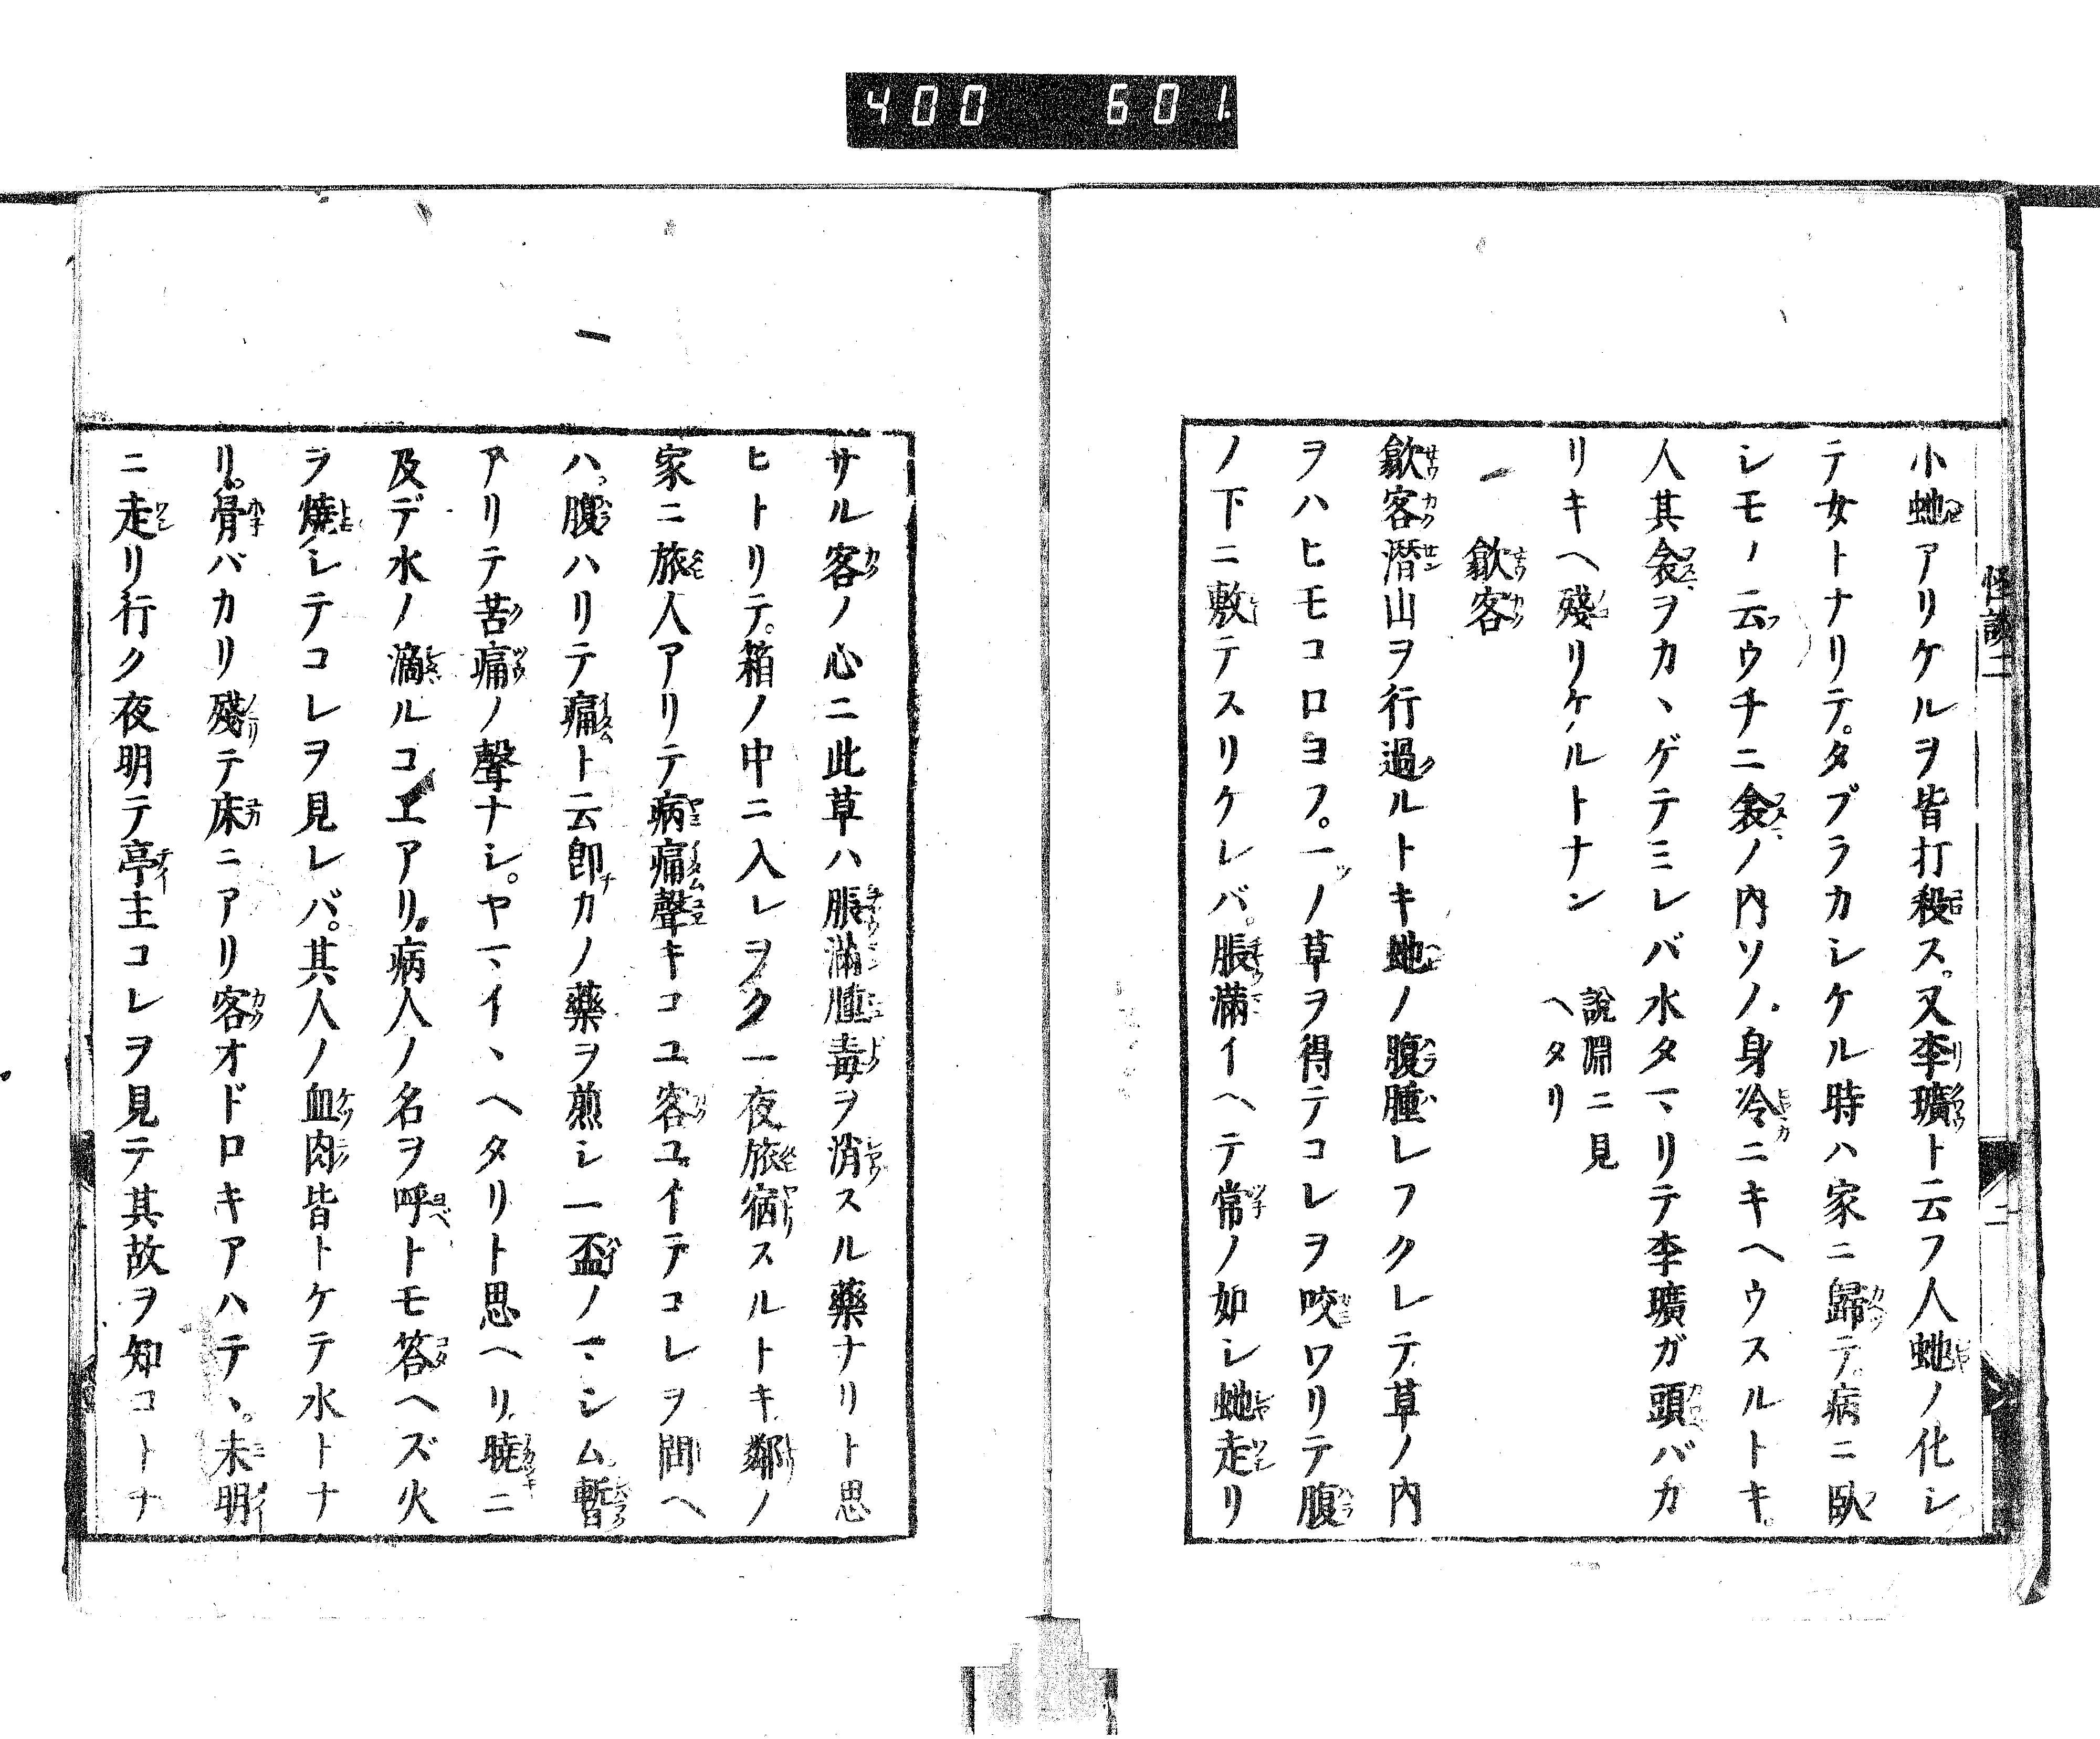 400 601
怪談二
小虵アリケルヲ皆打殺ス。又李㼅ト云フ人虵ノ化シ
テ女トナリテ。タブラカシケル時ハ家ニ歸テ。病ニ臥
シモノ云ウチニ衾ノ内ソノ身冷ニキヘウスルトキ。
人其衾ヲカヽゲテミレバ水タマリテ李㼅ガ頭バカ
リキヘ殘リケルトナン 說淵ニ見
ヘタリ
歙客
歙客潛山ヲ行過ルトキ虵ノ腹腫レフクレテ草ノ内
ヲハヒモコロヨフ。一ノ草ヲ得テコレヲ咬ワリテ腹
ノ下ニ敷テスリケレバ。脹滿イヘテ常ノ如シ虵走リ
サル客ノ心ニ此草ハ脹滿腫毒ヲ消スル藥ナリト思
ヒトリテ。箱ノ中ニ入レヲク一夜旅宿スルトキ鄰ノ
家ニ旅人アリテ病痛聲キコユ客ユイテコレヲ問ヘ
ハ。腹ハリテ痛ト云卽カノ藥ヲ煎シ一盃ノマシム暫
アリテ苦痛ノ聲ナシ。ヤマイヽヘタリト思ヘリ。曉ニ
及デ水ノ滴ルコヱアリ。病人ノ名ヲ呼トモ答ヘズ火
ヲ燒シテコレヲ見レバ。其人ノ血肉皆トケテ水トナ
リ。骨バカリ殘テ床ニアリ客オドロキアハテヽ。未明
ニ走リ行ク夜明テ亭主コレヲ見テ其故ヲ知コトナ